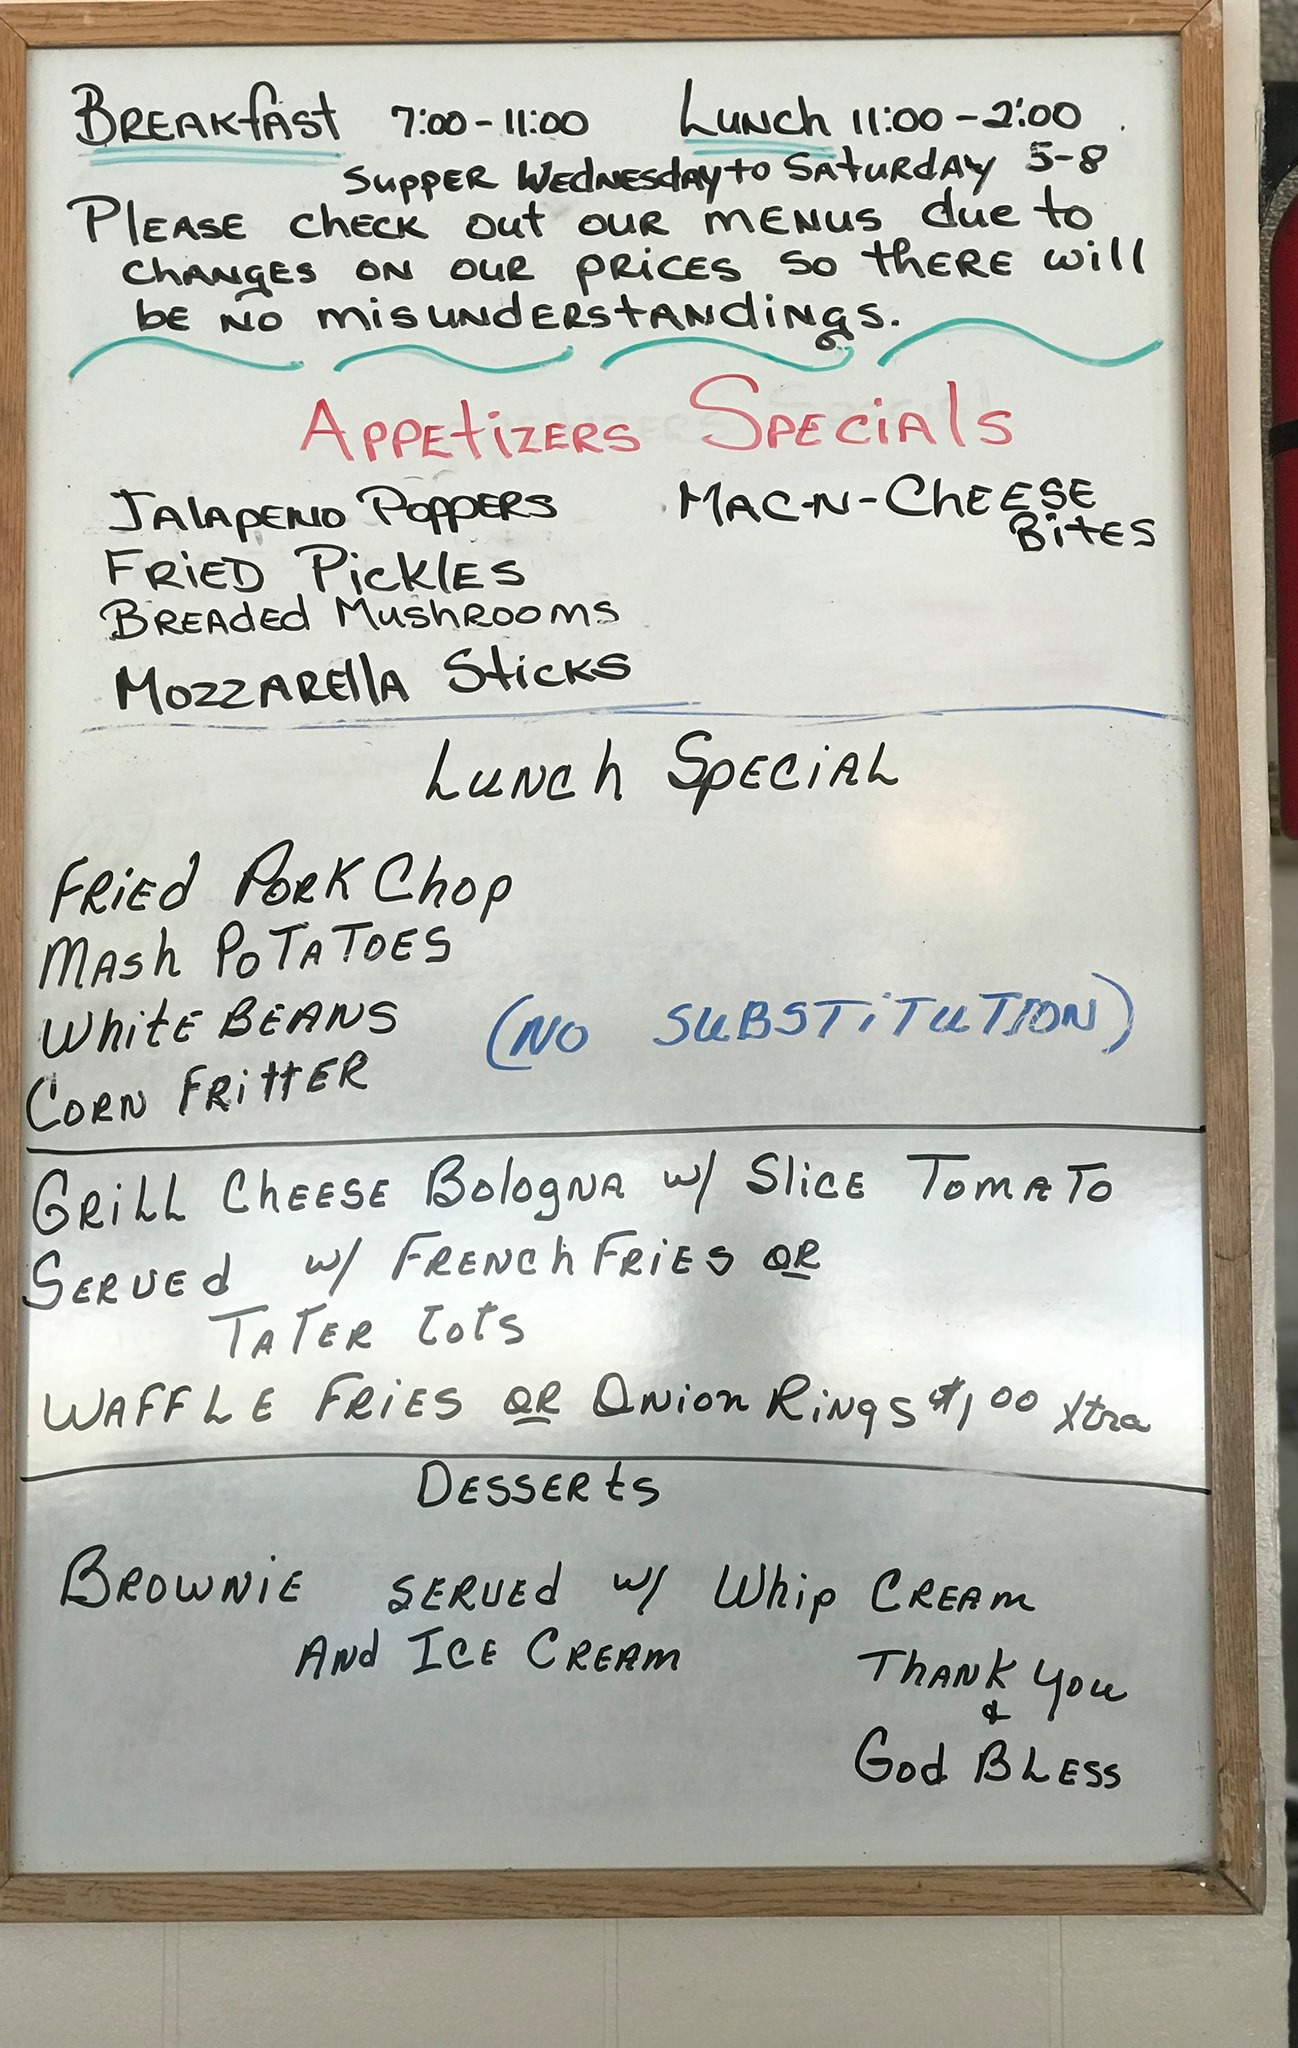 BREAKfAST 7:00-11:00 LUNCH 11:00-2:00
SUPPER WEDNESDAY to SATURDAY 5-8
PLEASE CHECK OUT OUR MENUS due to
CHANGES ON OUR PRICES SO tHERE will
bE NO misUNDERStANdiNgs.
APPEtiZERS SPECiAlS
JAlAPENO POPPERS MAC-N-CHEESE
BitES
FRiED PiCKlES
BREAdEd MUSHROOmS
MOZZAREllA StiCKS
LUNCH SPECiAL
FRiEd PORK CHOP
MASh POTATOES
WHitE BEANS (NO SUBSTiTUTION)
CORN FRittER
GRiLL CHEESE BologNA w/ SliCE TOmATO
SERVEd w/ FRENCH FRiES OR
TATER tOtS
WAFFLE FRiES OR ONion RiNgS $1.00 Xtra
DESSERtS
BROWNiE SERVEd w/ WHip CREAm
ANd ICE CREAm
THANK YOU
&
God BLESS